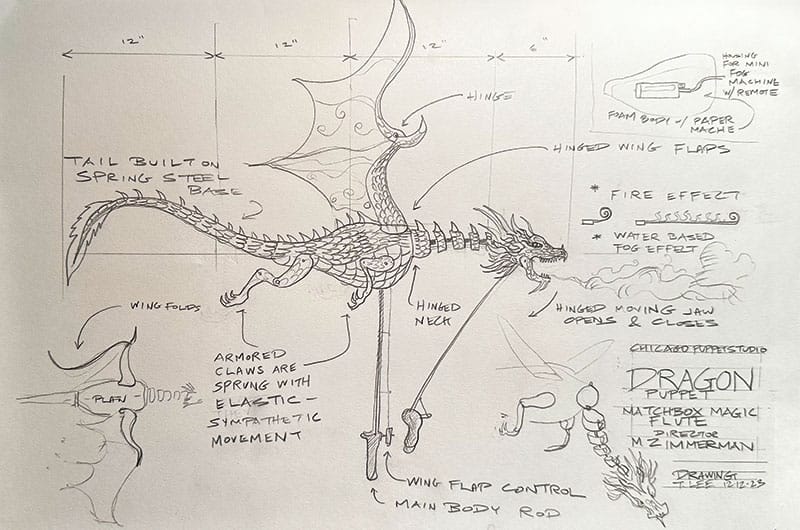 12"
12"
12"
6"
HOUSING
FOR MINI
FOG
MACHINE
W/REMOTE
FOAM BODY w/ PAPER
MACHE
HINGE
HINGED WING FLAPS
TAIL BUILT ON
SPRING STEEL
BASE
* FIRE EFFECT
* WATER BASED
FOG EFFECT
HINGED
NECK
HINGED MOVING JAW
OPENS & CLOSES
WING FOLDS
PLAN
ARMORED
CLAWS ARE
SPRUNG WITH
ELASTIC -
SYMPATHETIC
MOVEMENT
WING FLAP CONTROL
MAIN BODY ROD
CHICAGO PUPPET STUDIO
DRAGON
PUPPET
MATCHBOX MAGIC
FLUTE
DIRECTOR
M ZIMMERMAN
DRAWING
T. LEE 12.12.23